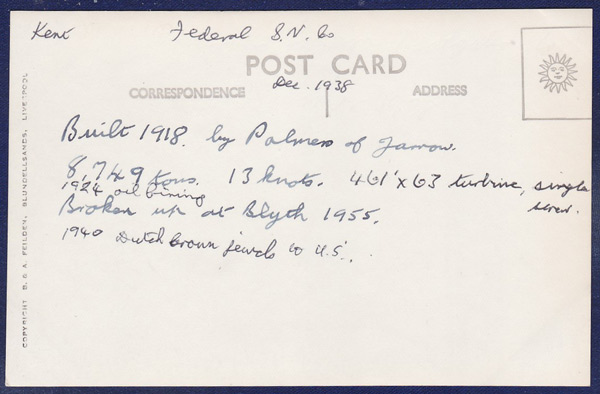 Kent Federal S.N. Co
POST CARD
Dec. 1938
CORRESPONDENCE ADDRESS
Built 1918. by Palmers of Jarrow.
8,749 tons. 13 knots. 461'x63 turbine, single screw.
1924 oil
Broken up at Blyth 1955.
1940 Dutch crown jewels to U.S.
COPYRIGHT B. & A. FEILDEN, BLUNDELLSANDS, LIVERPOOL